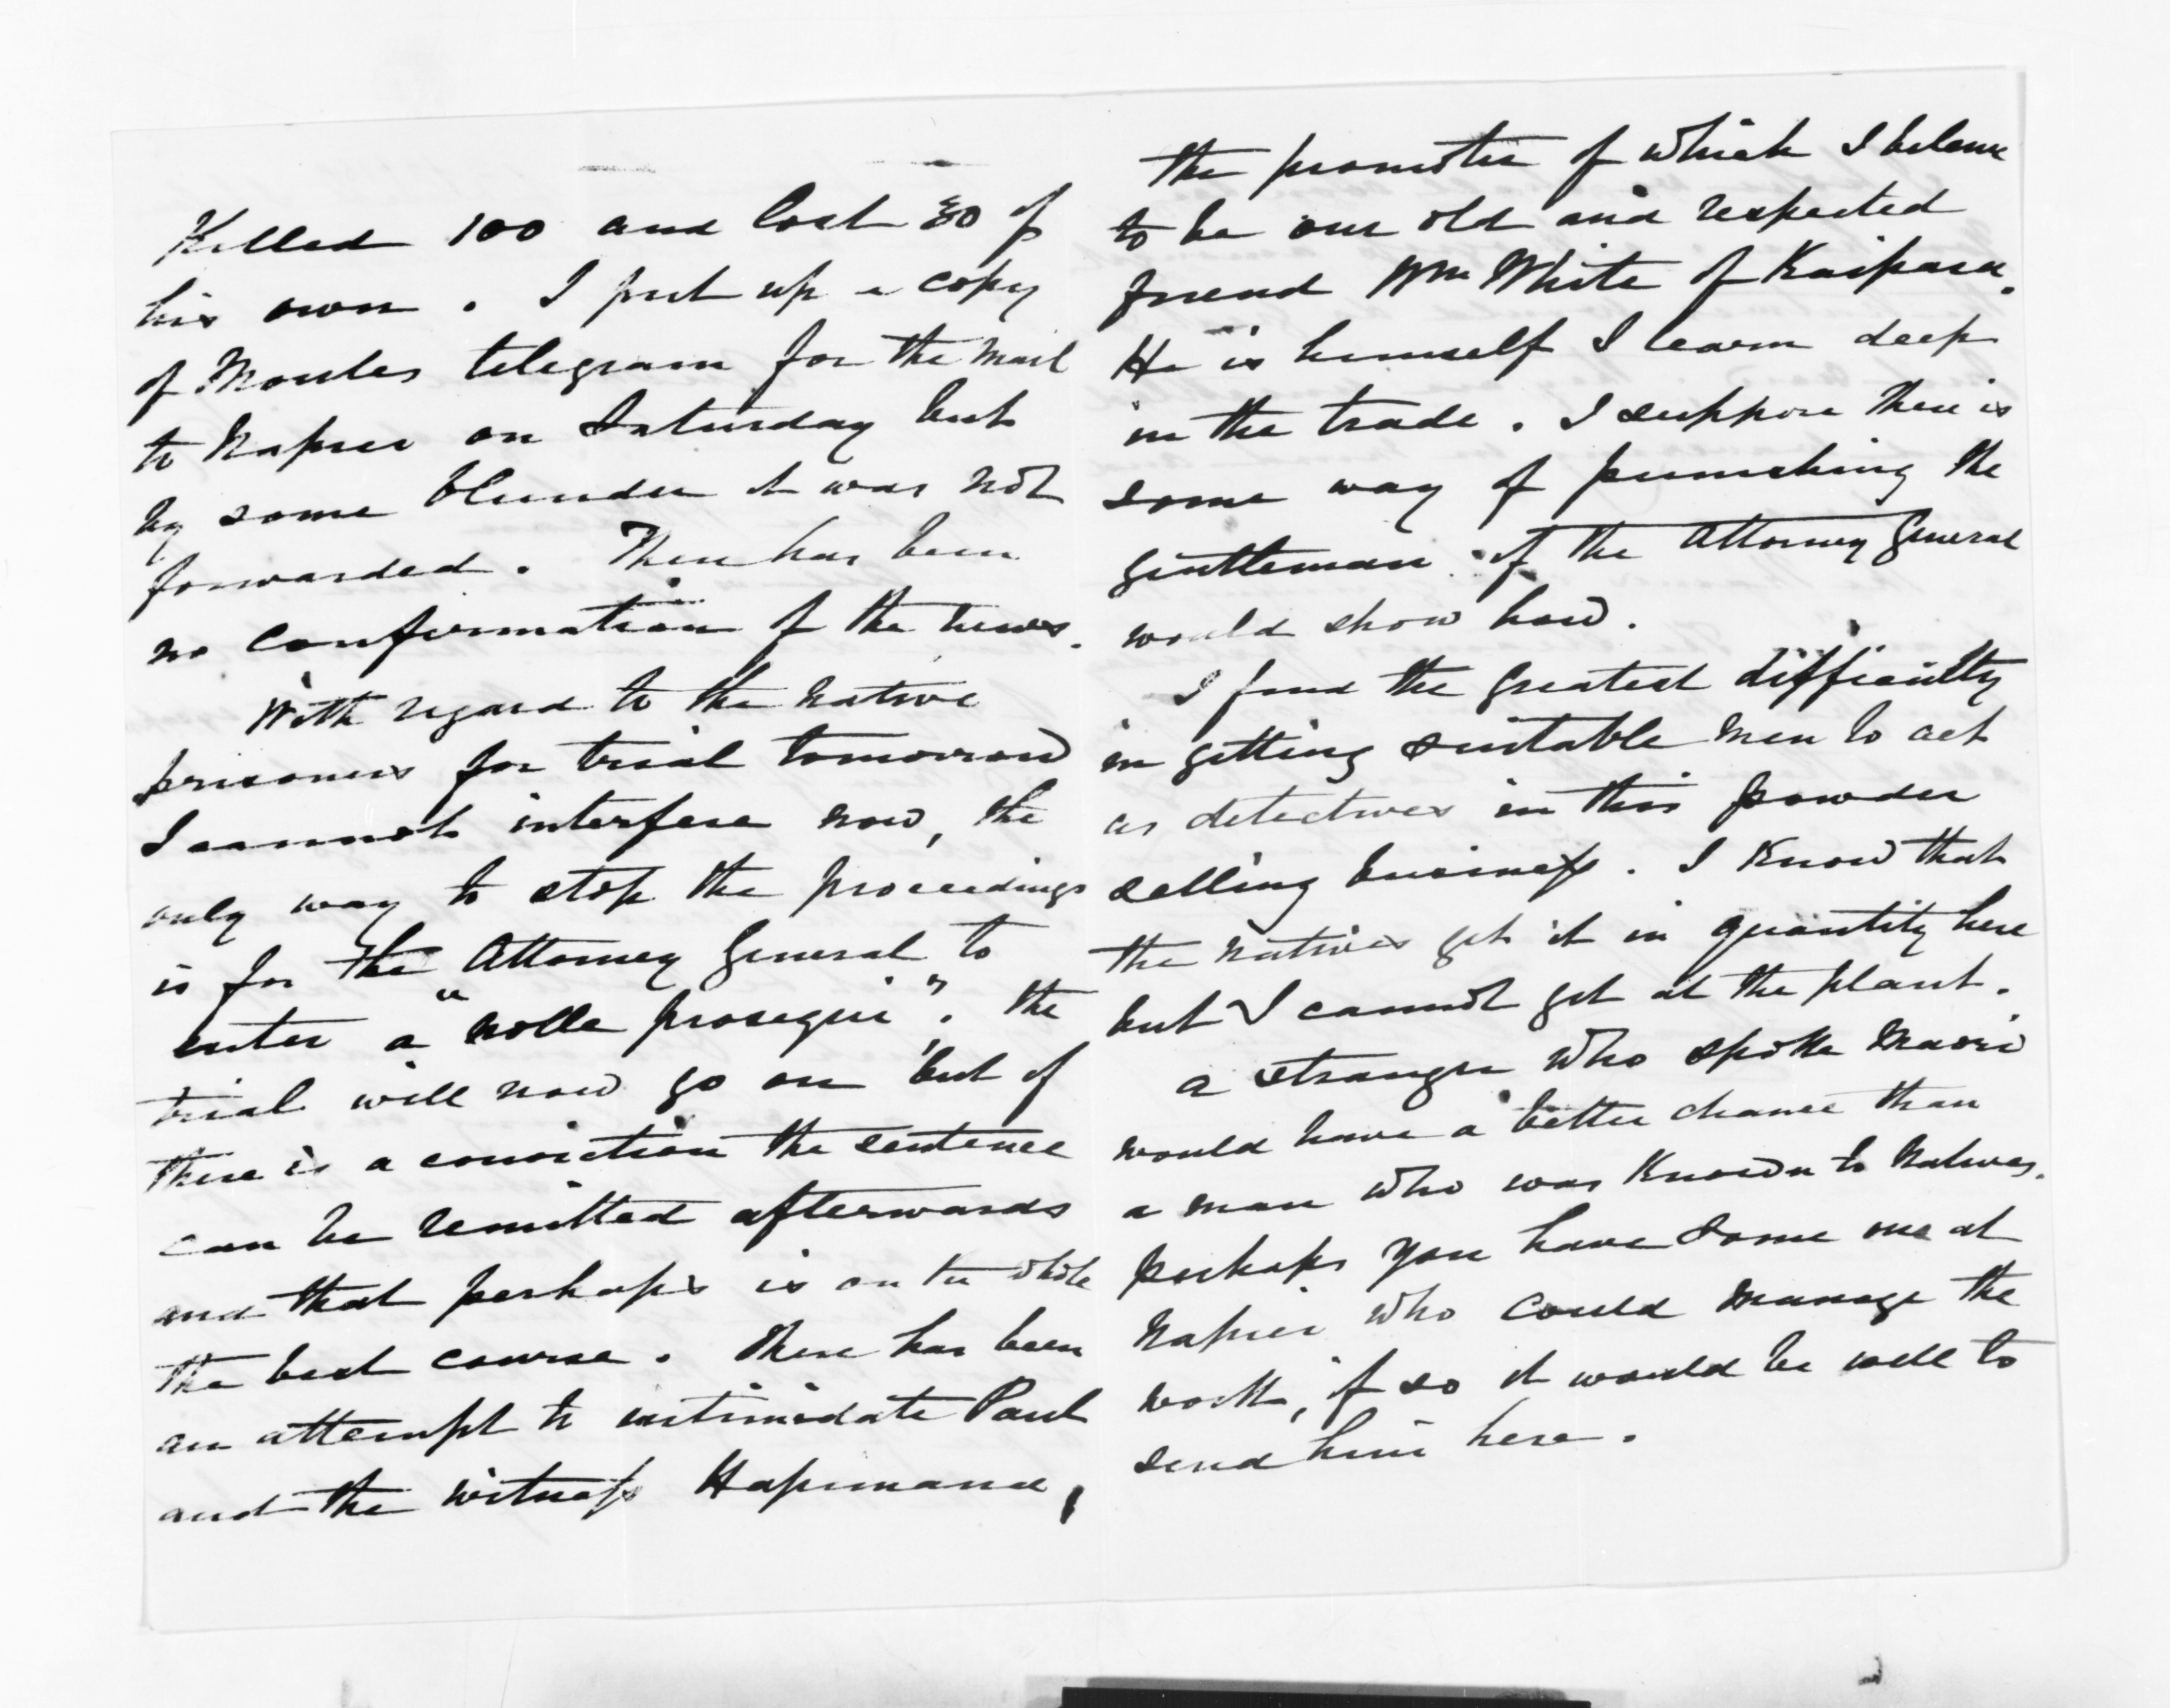 Killed 100 and lost 30 of
his own. I put up a copy
of Moules telegram for the mail
to Napier on Saturday but
by some blunder it was not
forwarded. There has been
no confirmation of the news.
With regard to the Native
prisoners for trial tomorrow
I cannot interfere now, the
only way to stop the proceedings
is for the Attorney General to
enter a "nolle prosequi", the
trial will now go on but if
there is a conviction the sentence
can be remitted afterwards
and that perhaps is on the whole
the best course. There has been
an attempt to intimidate Paul
and the witness Hapimana,
the promoter of which I believe
to be our old and respected
friend Wm White of Kaipara.
He is himself I learn deep
in the trade. I suppose there is
some way of punishing the
gentleman if the Attorney General
would show how.
I find the greatest difficulty
in getting suitable men to act
as detectives in this powder
selling business. I know that
the natives get it in quantity here
but I cannot get at the plant.
a stranger who spoke Maori
would have a better chance than
a man who was known to Natives.
perhaps you have some one at
Napier who could manage the
work, if so it would be well to
send him here.